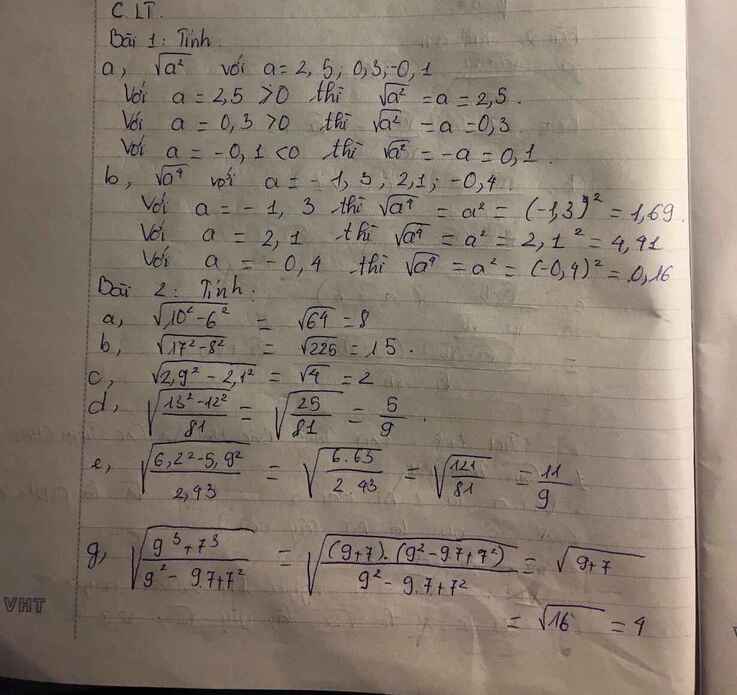 C LT.
Bài 1: Tính
a, √a² với a = 2,5; 0,3; -0,1
Với a = 2,5 > 0 thì √a² = a = 2,5.
Với a = 0,3 > 0 thì √a² = a = 0,3.
Với a = -0,1 < 0 thì √a² = -a = 0,1.
b, √a⁴ với a = -1,3; 2,1; -0,4
Với a = -1,3 thì √a⁴ = a² = (-1,3)² = 1,69.
Với a = 2,1 thì √a⁴ = a² = 2,1² = 4,41
Với a = -0,4 thì √a⁴ = a² = (-0,4)² = 0,16
Bài 2: Tính:
a, √(10² - 6²) = √64 = 8
b, √(17² - 8²) = √225 = 15.
c, √(2,9² - 2,1²) = √4 = 2
d, √((13² - 12²)/81) = √(25/81) = 5/9.
e, √((6,2² - 5,9²)/2,43) = √(6.63/2.43) = √(121/81) = 11/9
g, √((9³ + 7³)/(9² - 9.7 + 7²)) = √((9+7).(9² - 9.7 + 7²)/(9² - 9.7 + 7²)) = √(9+7)
= √16 = 4
VHT